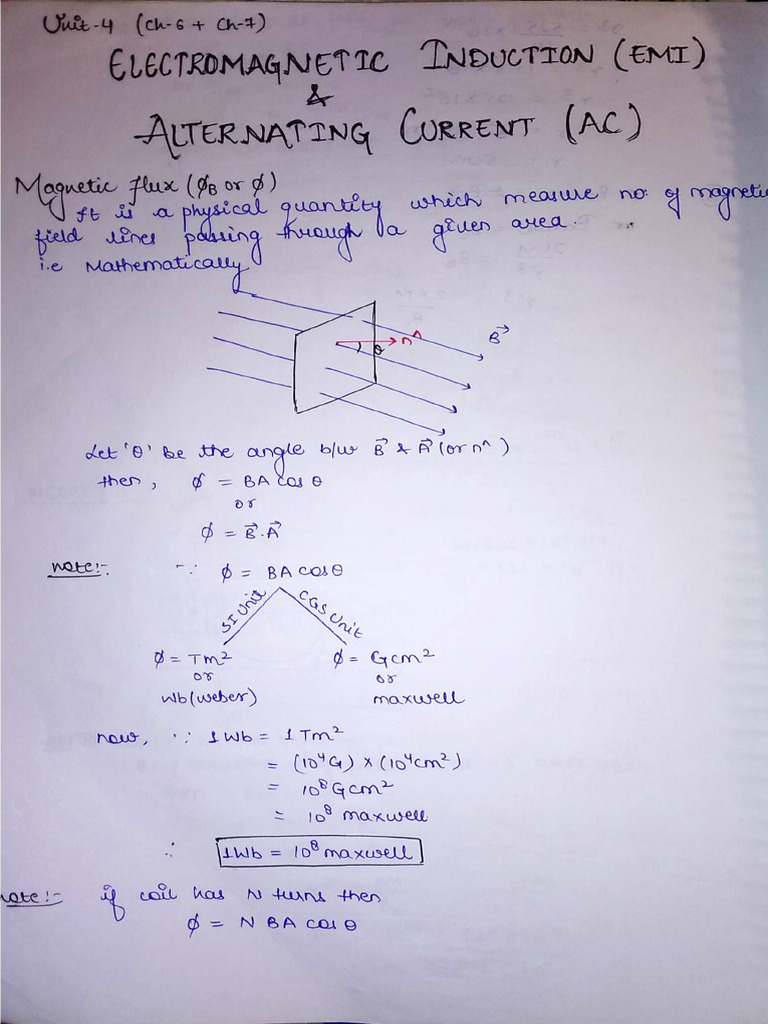 Unit-4 (Ch-6 + Ch-7)
ELECTROMAGNETIC INDUCTION (EMI)
&
ALTERNATING CURRENT (AC)
Magnetic flux (ϕB or ϕ)
It is a physical quantity which measure no: of magnetic
field lines passing through a given area.
i.e Mathematically
n^
θ
B⃗
Let 'θ' be the angle b/w B⃗ & A⃗ (or n^)
then, ϕ = BA cos θ
or
ϕ = B⃗.A⃗
note:- ∵ ϕ = BA cosθ
SI Unit CGS Unit
ϕ = Tm² ϕ = Gcm²
or or
Wb(weber) maxwell
now, ∵ 1Wb = 1Tm²
= (10⁴G) × (10⁴cm²)
= 10⁸Gcm²
= 10⁸ maxwell
∴ 1Wb = 10⁸maxwell
note:- if coil has N turns then
ϕ = N BA cos θ